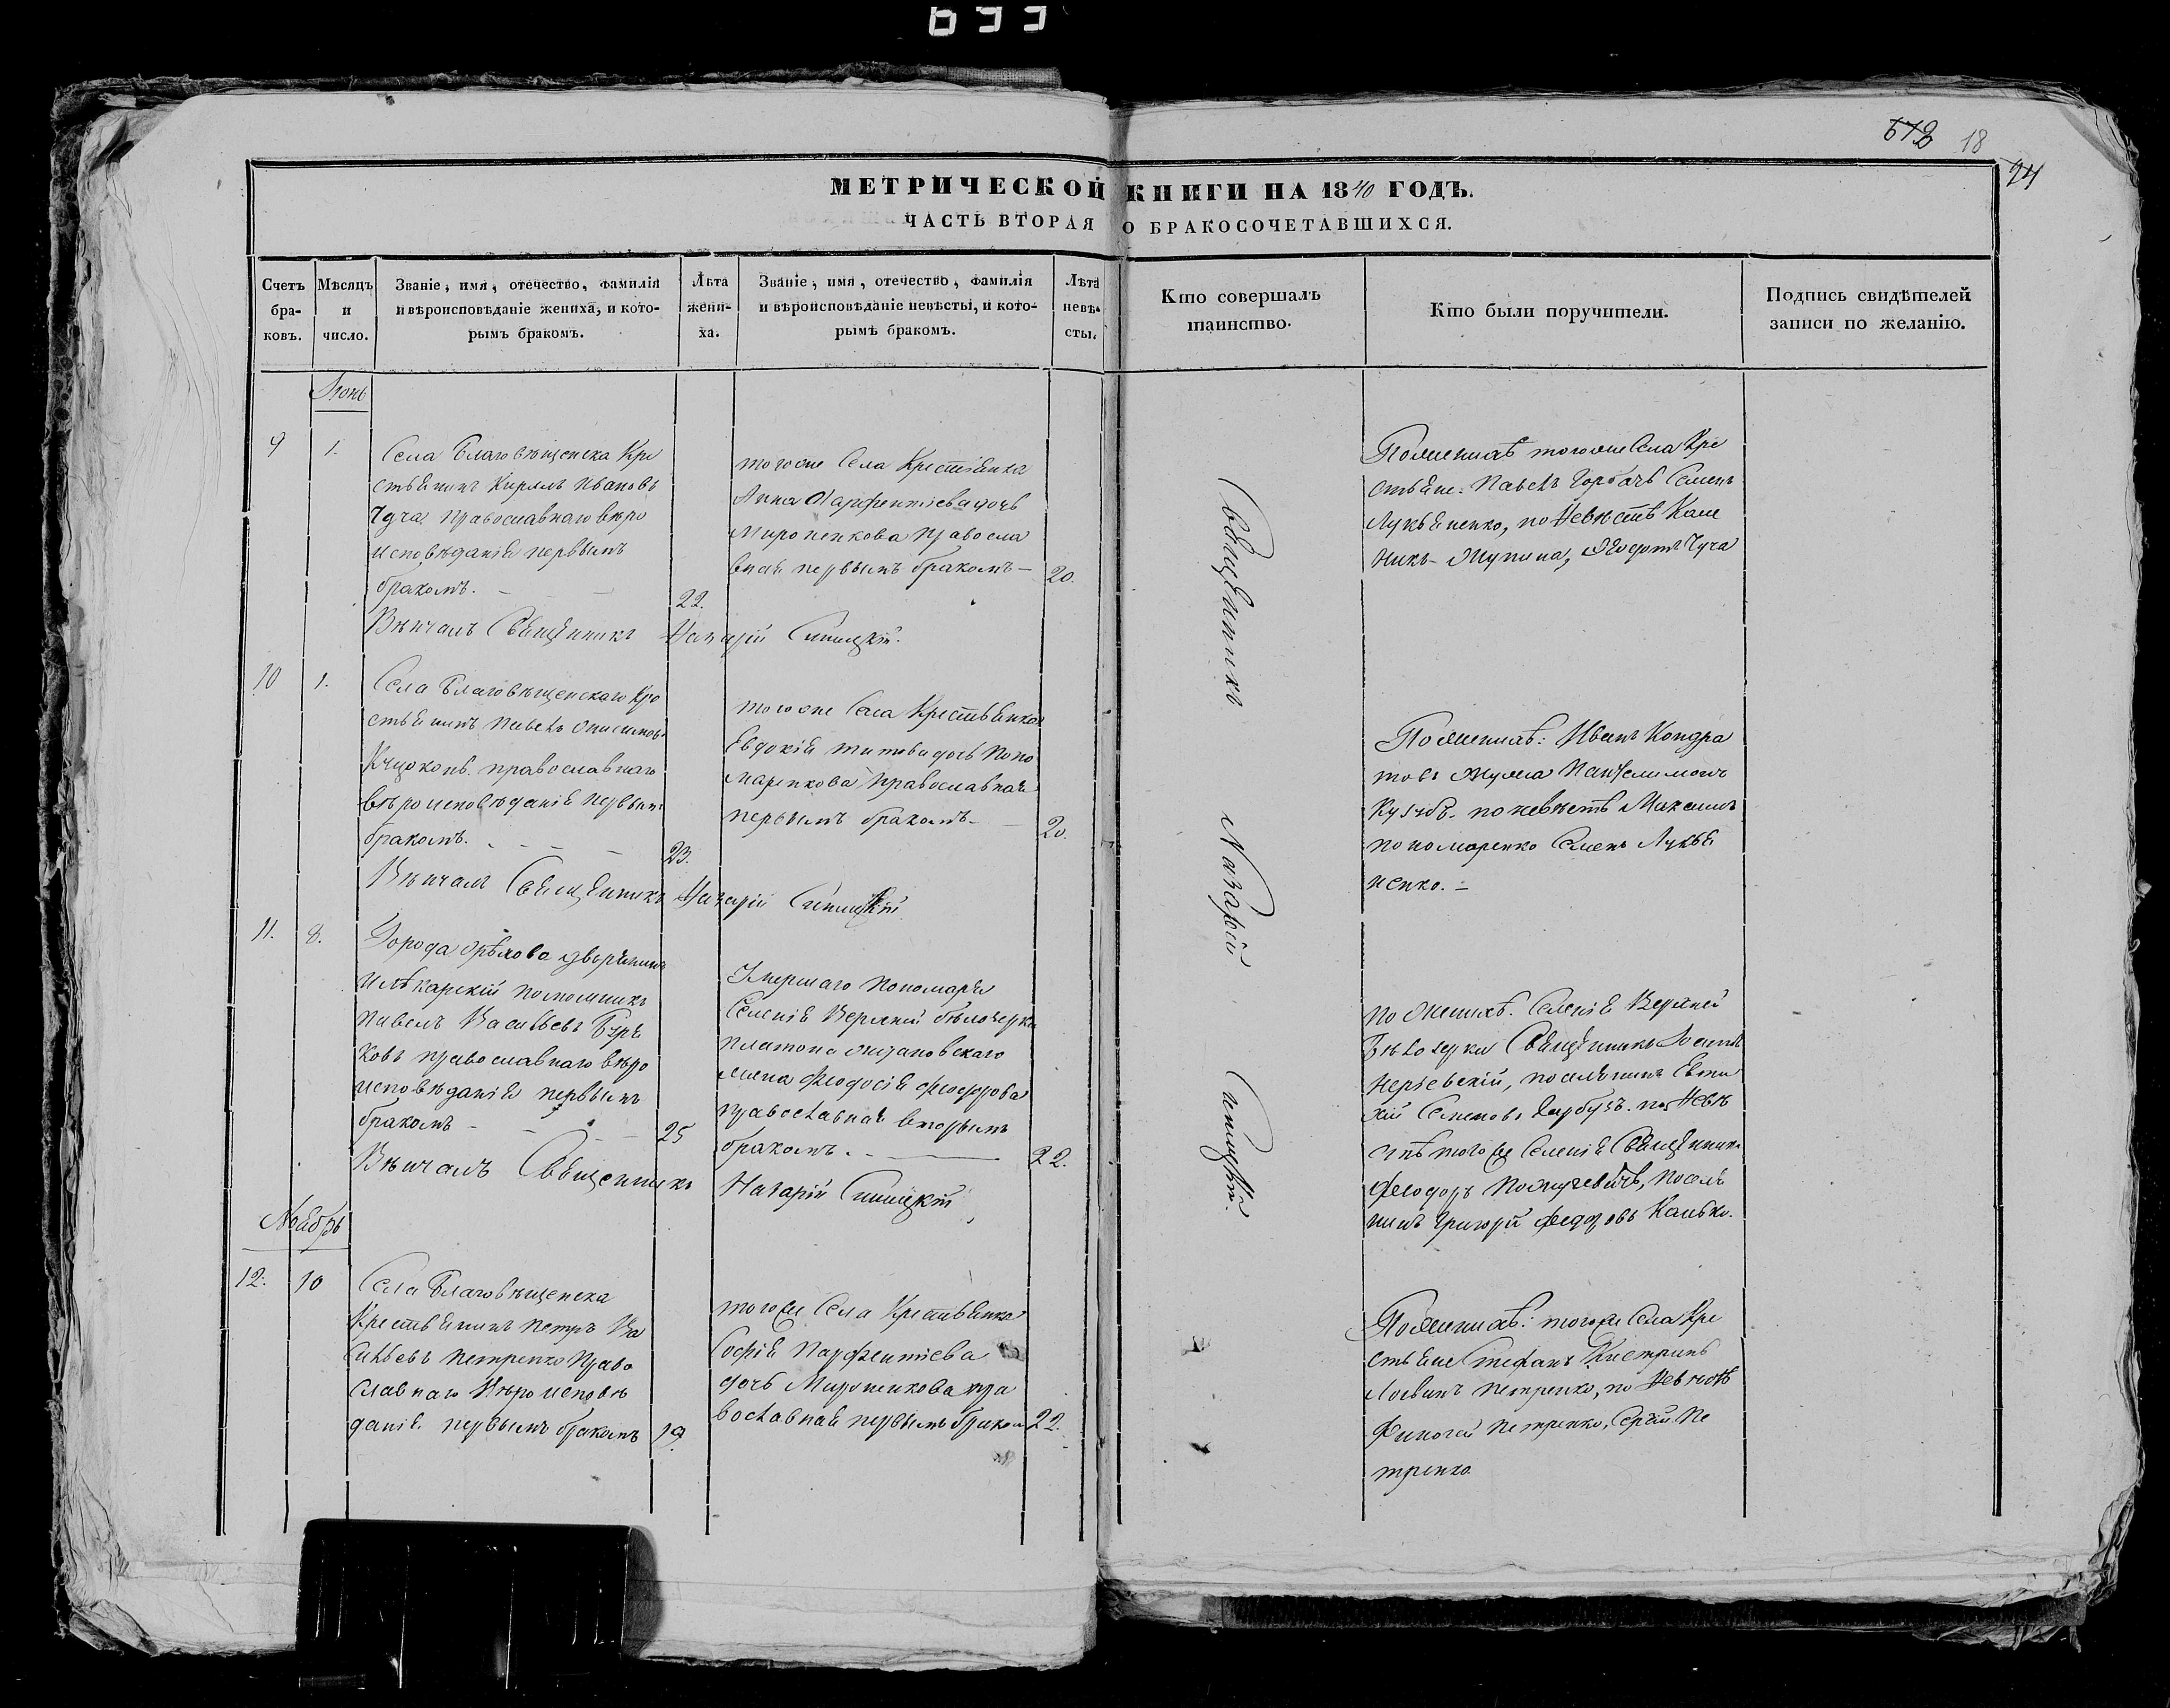 633
612 18
24
МЕТРИЧЕСКОЙ КНИГИ НА 1840 ГОДЪ.
ЧАСТЬ ВТОРАЯ О БРАКОСОЧЕТАВШИХСЯ.
Счетъ бра-ковъ.
Мѣсяцъ и число.
Званіе, имя, отечество, фамилія
и вѣроисповѣданіе жениха, и кото-
рымъ бракомъ.
Лѣта жени-ха.
Званіе, имя, отечество, фамилія
и вѣроисповѣданіе невѣсты, и кото-
рымъ бракомъ.
Лѣта невѣ-сты.
Кто совершалъ
таинство.
Кто были поручители.
Подпись свидѣтелей
записи по желанію.
Іюнь
9
1.
Села Благовѣщенска Кре
стьянинъ Кирилъ Ивановъ
Чуча православнаго вѣро
исповѣданія первымъ
бракомъ.
22.
тогоже Села Крестьянка
Анна Парфентіева дочь
Мироненкова правосла
вная первымъ бракомъ
20.
По женихѣ тогоже Села Кре
стьяне: Павелъ Горбачъ Семенъ
Лукьяненко, по Невѣстѣ Кале
никъ Жупина, Ѳеодотъ Чуча
Вѣнчалъ Священникъ Назарій Синицкій.
10
1.
Села Благовѣщенскаго Кре
стьянинъ Павелъ Онисимовъ
православнаго
вѣроисповѣданія первымъ
бракомъ.
23.
тогоже Села Крестьянка
Евдокія Титова дочь Поно
маренкова православная
первымъ бракомъ
20.
По женихѣ: Иванъ Кондра
товъ Пантелимонъ
по невѣстѣ Максимъ
Пономаренко Семенъ Лукья
ненко.
Вѣнчалъ Священникъ Назарій Синицкій
11.
8.
Города Орѣхова дворянинъ
помощникъ
Павелъ Васильевъ Буря
ковъ православнаго вѣро
исповѣданія первымъ
бракомъ
25
Умершаго Пономаря
Селенія Верхней Бѣлозерки
Платона
жена Феодосія Феодорова
православная вторымъ
бракомъ.
22.
по Женихѣ: Селенія Верхней
Бѣлозерки Священникъ Іосифъ
поселянинъ
Семеновъ по Невѣ
стѣ того же Селенія Священникъ
Феодоръ поселя
нинъ Григорій Федоровъ
Вѣнчалъ Священникъ Назарій Синицкій
Священникъ Назарій Синицкій.
Ноябрь
12.
10
Села Благовѣщенска
Крестьянинъ Петръ Ва
сильевъ Петренко Право
славнаго Вѣроисповѣ
данія первымъ бракомъ
19.
того же Села Крестьянка
Софія Парфентіева
дочь Мироненкова пра
вославная первымъ браком
22.
По женихѣ: того же Села Кре
стьяне Стефанъ
Логвинъ Петренко, по Невѣстѣ
Финогей Петренко, Сергій Пе
тренко